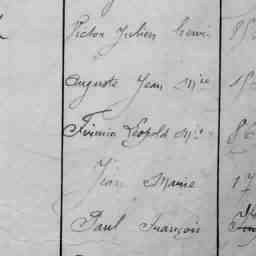 Victor Julien Henri
Auguste Jean Mie
Firmin Léopold Mie 86
Jean Marie 17
Paul François